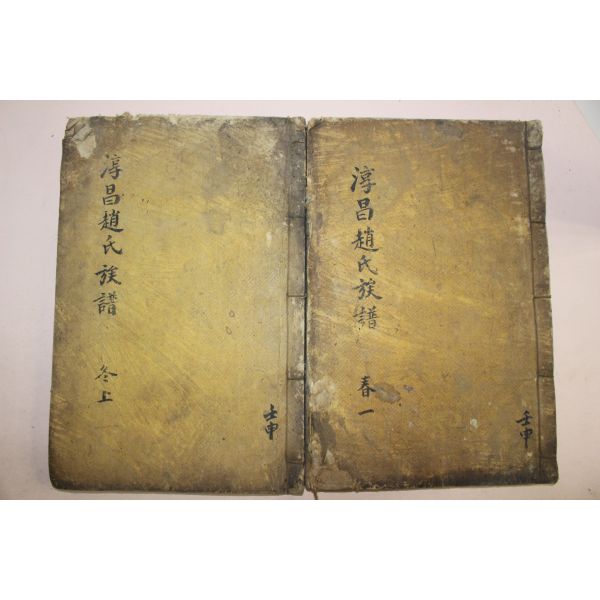 淳昌趙氏族譜
春一
壬申
淳昌趙氏族譜
冬上
壬申